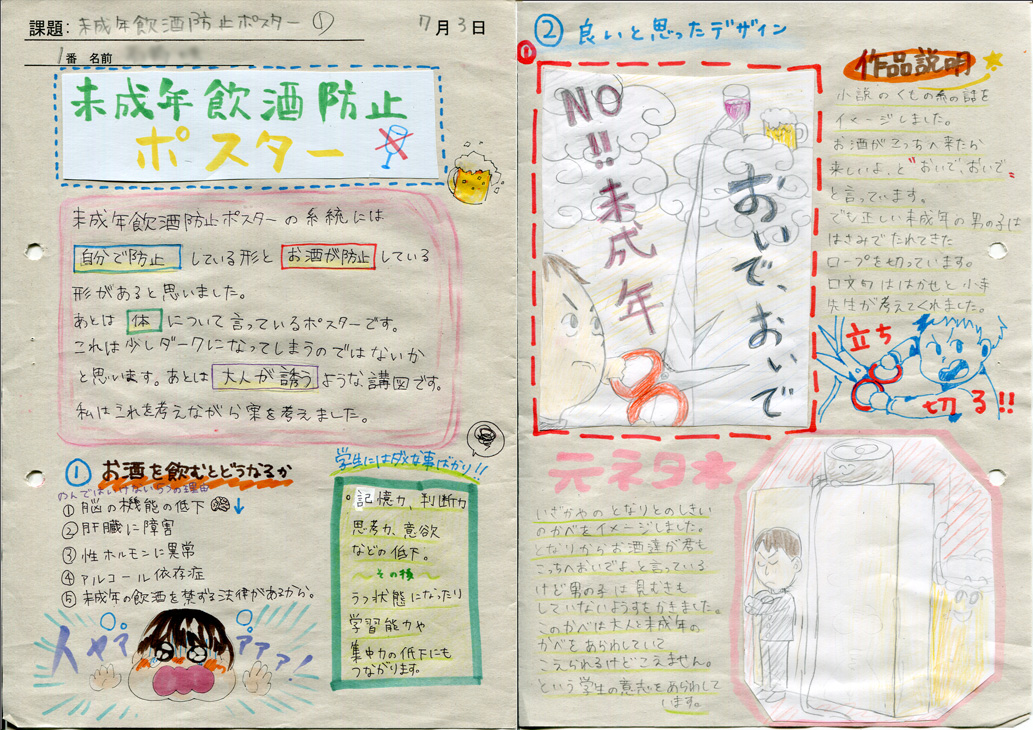 課題：未成年飲酒防止ポスター ①
7月3日
1番 名前
未成年飲酒防止
ポスター
未成年飲酒防止ポスターの系統には
自分で防止 している形と お酒が防止 している
形があると思いました。
あとは 体 について言っているポスターです。
これは少しダークになってしまうのではないか
と思います。あとは 大人が誘う ような講図です。
私はこれを考えながら案を考えました。
① お酒を飲むとどうなるか
のんではいけない5つの理由
①脳の機能の低下 ↓
②肝臓に障害
③性ホルモンに異常
④アルコール依存症
⑤未成年の飲酒を禁ずる法律があるから。
学生にはダメな事ばかり!!
。記憶力、判断力
思考力、意欲
などの低下。
〜その後〜
うつ状態になったり
学習能力や
集中力の低下にも
つながります。
② 良いと思ったデザイン
①
NO!!未成年
おいで、おいで
作品説明
小説のくもの糸の話を
イメージしました。
お酒がこっちへ来たら
楽しいよ、と〝おいで、おいで〟
と言っています。
でも正しい未成年の男の子は
はさみでたれてきた
ロープを切っています。
口文句ははかせと小寺
先生が考えてくれました。
立ち
切る!!
元ネタ
いざかやのとなりとのしきい
のかべをイメージしました。
となりからお酒達が君も
こっちへおいでよ。と言っている
けど男の子は見むきも
していないようすをかきました。
このかべは大人と未成年の
かべをあらわしていて
こえられるけどこえません。
という学生の意志をあらわして
います。